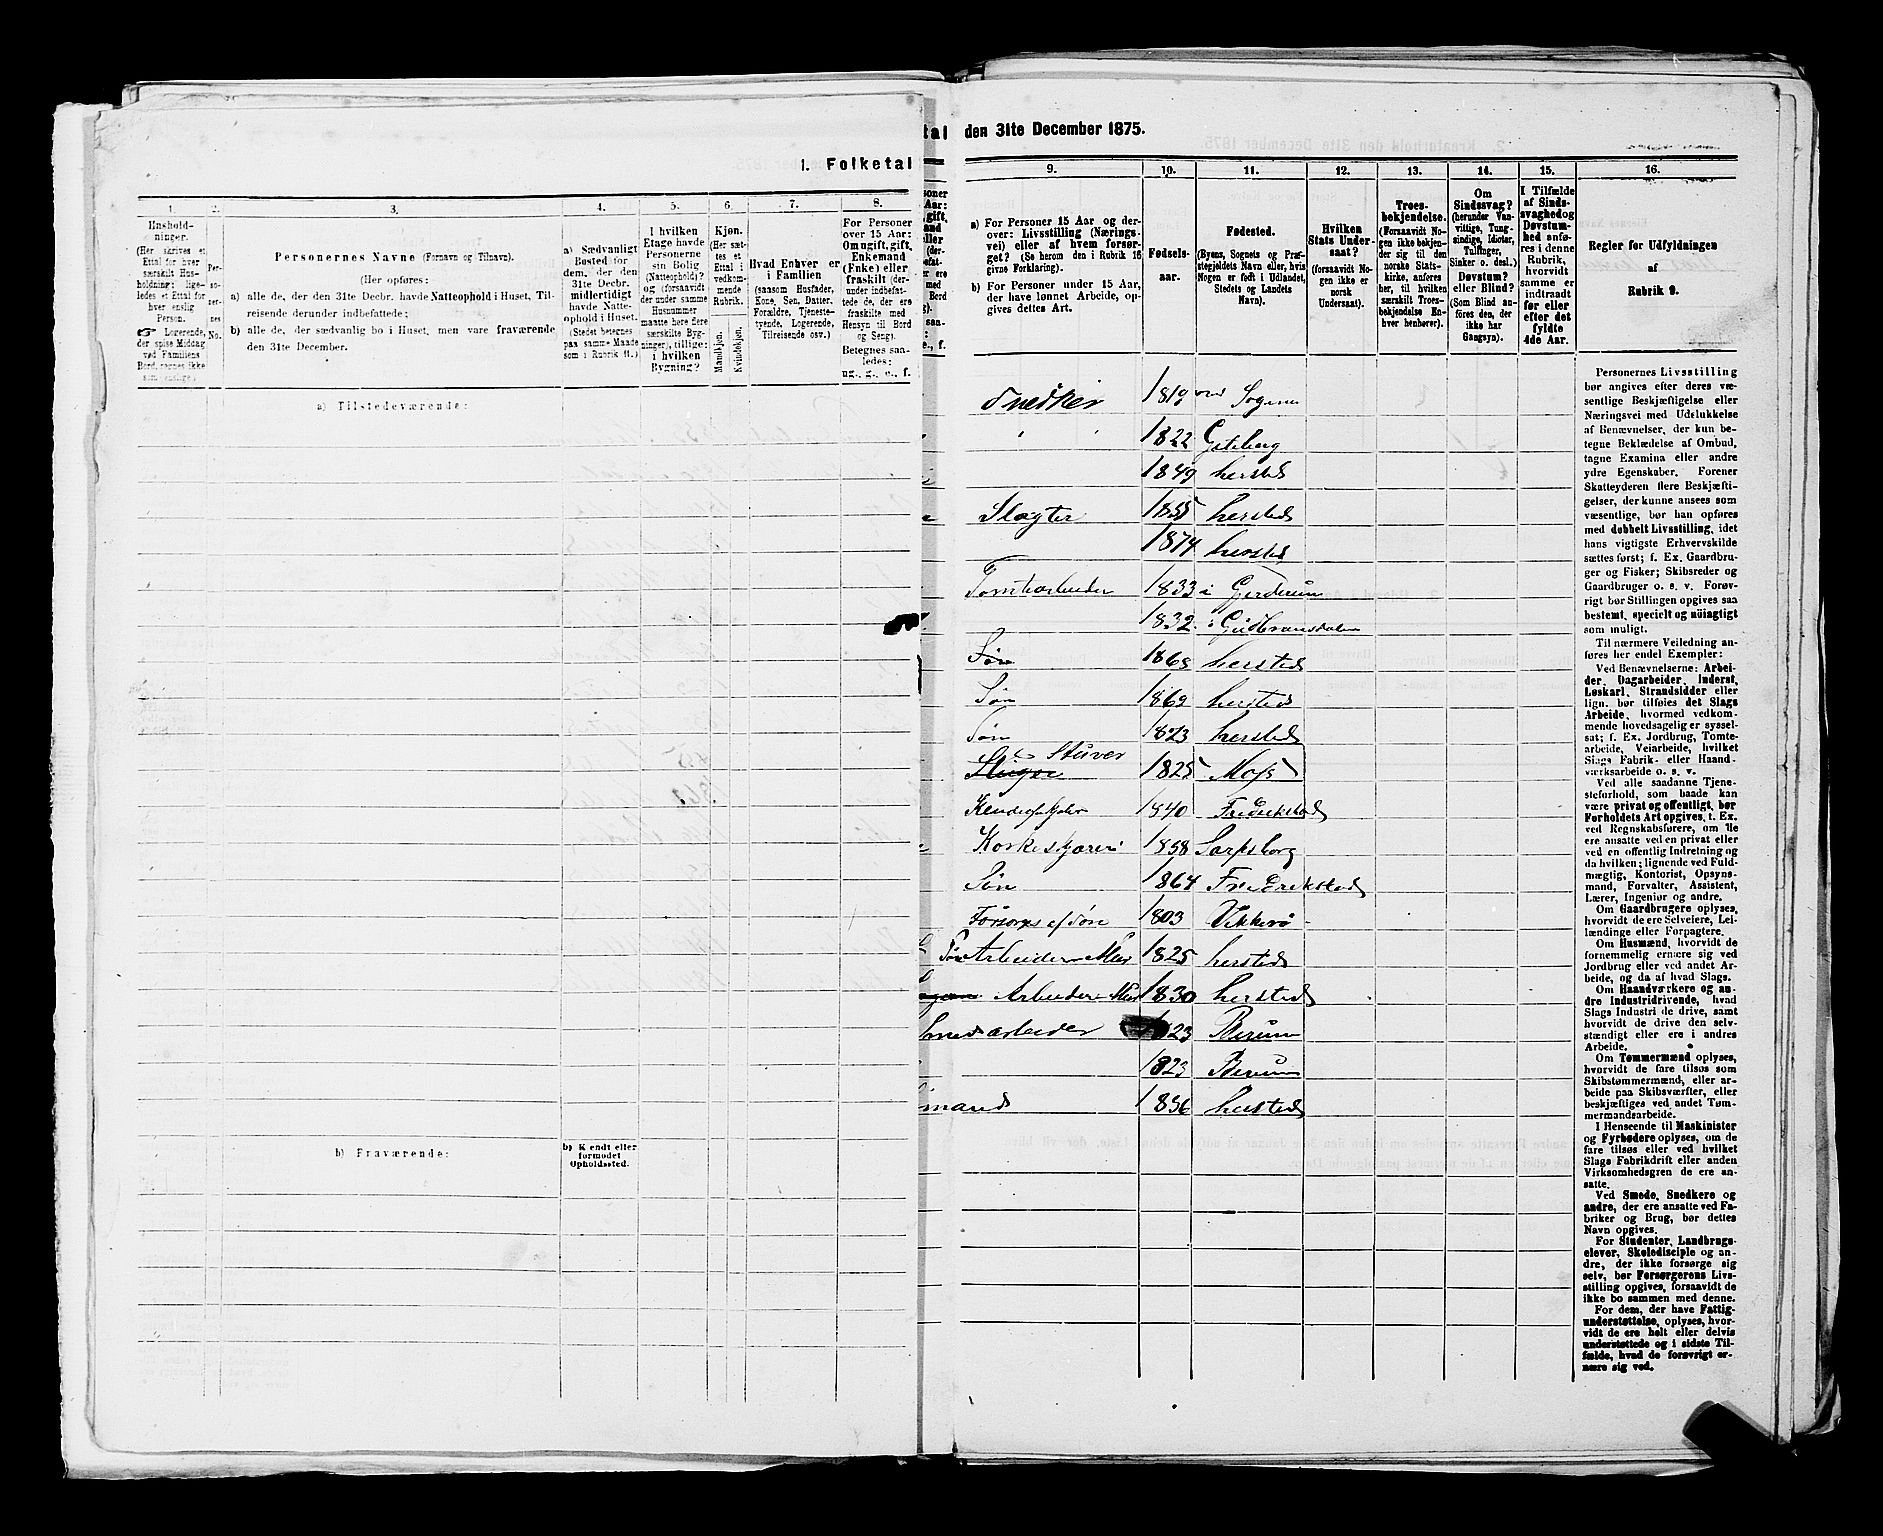 1. Folketal
1.
2.
3.
4.
5.
6.
7.
8.
Husholdninger.
(Her skrives et
Ettal for hver
særskilt Hus-
holdning; lige-
ledes et Ettal for
hver enslig
Person.
Logerende,
der spise Middag
ved Familiens
Bord, regnes ikke
som enslige.)
Per-
so-
ner-
nes
No.
Personernes Navne (Fornavn og Tilnavn).
(Her opføres:
a) alle de, der den 31te Decbr. havde Natteophold i Huset, Til-
reisende derunder indbefattede;
b) alle de, der sædvanlig bo i Huset, men vare fraværende
den 31te December.)
a) Sædvanligt
Bosted for
dem, der den
31te Decbr.
midlertidigt
havde Natte-
ophold i Huset.
(Stedet betegnes
paa samme Maade
som i Rubrik 11.)
I hvilken
Etage havde
Personerne
sin Bolig
(Natteophold)?
og (forsaavidt
der under samme
Husnummer
maatte høre flere
særskilte Byg-
ninger), tillige:
i hvilken
Bygning?
Kjøn.
(Her sæt-
tes et
Ettal i
vedkom-
mende
Rubrik.)
Mandkjøn.
Kvindekjøn.
Hvad Enhver er
i Familien
(saasom Husfader,
Kone, Søn, Datter.
Forældre, Tjeneste-
tyende, Logerende,
Tilreisende osv.)
For Personer
over 15 Aar:
Om ugift, gift,
Enkemand
(Enke) eller
fraskilt (der-
under indbefat-
tede de, der ere
fraskilte med
Hensyn til Bord
og Seng).
Betegnes saa-
ledes:
ug., g., e., f.
a) Tilstedeværende:
b) Fraværende:
b) Kjendt eller
formodet
Opholdssted.
tal den 31te December 1875.
9.
10.
11.
12.
13.
14.
15.
16.
a) For Personer 15 Aar og der-
over: Livsstilling (Nærings-
vei) eller af hvem forsør-
get? (Se herom den i Rubrik 16
givne Forklaring).
b) For Personer under 15 Aar,
der have lønnet Arbeide, op-
gives dettes Art.
Fødsels-
aar.
Fødested.
(Byens, Sognets og Præ-
stegjeldets Navn eller, hvis
Nogen er født i Udlandet,
Stedets og Landets
Navn).
Hvilken
Stats Under-
saat?
(forsaavidt No-
gen ikke er
norsk
Undersaat).
Troes-
bekjendelse.
(Forsaavidt No-
gen ikke bekjen-
der sig til den
norske Stats-
kirke, anføres
her, til hvilken
særskilt Troes-
bekjendelse En-
hver henhører).
Om
Sindssvag?
(herunder Van-
vittige, Tung-
sindige, Idioter,
Tullinger,
Sinker o. desl.)
Døvstum?
eller Blind?
(Som Blind an-
føres den, der
ikke har
Gangsyn).
I Tilfælde
af Sinds-
svaghed og
Døvstum-
hed anfø-
res i denne
Rubrik,
hvorvidt
samme er
indtraadt
før eller
efter det
fyldte
4de Aar.
Regler for Udfyldningen
af
Rubrik 9.
Snedker 1819
1822
1849 hersteds
Slagter 1855 hersteds
1874 hersted
Tomtearbeider 1833 i Gjerderum
1832 i Gudbransdalen
Søn hersteds
Søn 1869 hersteds
Søn hersteds
Stuver
1825 Moss
1840 Fredrikstad
1858 Sarpsborg
Søn 1864 Fredrikstad
Forsørges af Søn 1803
Arbeider 1825 hersteds
Arbeider 1830 hersteds
arbeider 1823 Berum
1823 Berum
1856 hersteds
Personernes Livsstilling
bør angives efter deres væ-
sentlige Beskjæftigelse eller
Næringsvei med Udelukkelse
af Benævnelser, der kun be-
tegne Beklædelse af Ombud,
tagne Examina eller andre
ydre Egenskaber. Forener
Skatteyderen flere Beskjæfti-
gelser, der kunne ansees som
væsentlige, bør han opføres
med dobbelt Livsstilling, idet
hans vigtigste Erhvervskilde
sættes først; f. Ex. Gaardbru-
ger og Fisker; Skibsreder og
Gaardbruger o. s. v. Forøv-
rigt bør Stillingen opgives saa
bestemt, specielt og nøiagtigt
som muligt.
Til nærmere Veiledning an-
føres her endel Exempler:
Ved Benævnelserne: Arbei-
der, Dagarbeider, Inderst,
Løskarl, Strandsidder eller
lign. bør tilføies det Slags
Arbeide, hvormed vedkom-
mende hovedsagelig er syssel-
sat; f. Ex. Jordbrug, Tomte-
arbeide, Veiarbeide, hvilket
Slags Fabrik- eller Haand-
værksarbeide o. s. v.
Ved alle saadanne Tjene-
steforhold, som baade kan
være privat og offentligt, bør
Forholdets Art opgives, t. Ex.
ved Regnskabsførere, om de
ere ansatte ved en privat eller
ved en offentlig Indretning og
da hvilken; lignende ved Fuld-
mægtig, Kontorist, Opsyns-
mand, Forvalter, Assistent,
Lærer, Ingeniør og andre.
Om Gaardbrugere oplyses,
hvorvidt de ere Selveiere, Lei-
lændinge eller Forpagtere.
Om Husmænd, hvorvidt de
fornemmelig ernære sig ved
Jordbrug eller ved andet Ar-
beide, og da af hvad Slags.
Om Haandværkere og an-
dre Industridrivende, hvad
Slags Industri de drive, samt
hvorvidt de drive den selv-
stændigt eller ere i andres
Arbeide.
Om Tømmermænd oplyses,
hvorvidt de fare tilsøs som
Skibstømmermænd, eller ar-
beide paa Skibsværfter, eller
beskjæftiges ved andet Tøm-
mermandsarbeide.
I Henseende til Maskinister
og Fyrbødere oplyses, om de
fare tilsøs eller ved hvilket
Slags Fabrikdrift eller anden
Virksomhedsgren de ere an-
satte.
Ved Smede, Snedkere og
andre, der ere ansatte ved Fa-
briker og Brug, bør dettes
Navn opgives.
For Studenter, Landbrugs-
elever, Skoledisciple og an-
dre, der ikke forsørge sig
selv, bør Forsørgerens Livs-
stilling opgives, forsaavidt de
ikke bo sammen med denne.
For dem, der have Fattig-
understøttelse, oplyses, hvor-
vidt de ere helt eller delvis
understøttede og i sidste Til-
fælde, hvad de forøvrigt er-
nære sig ved.